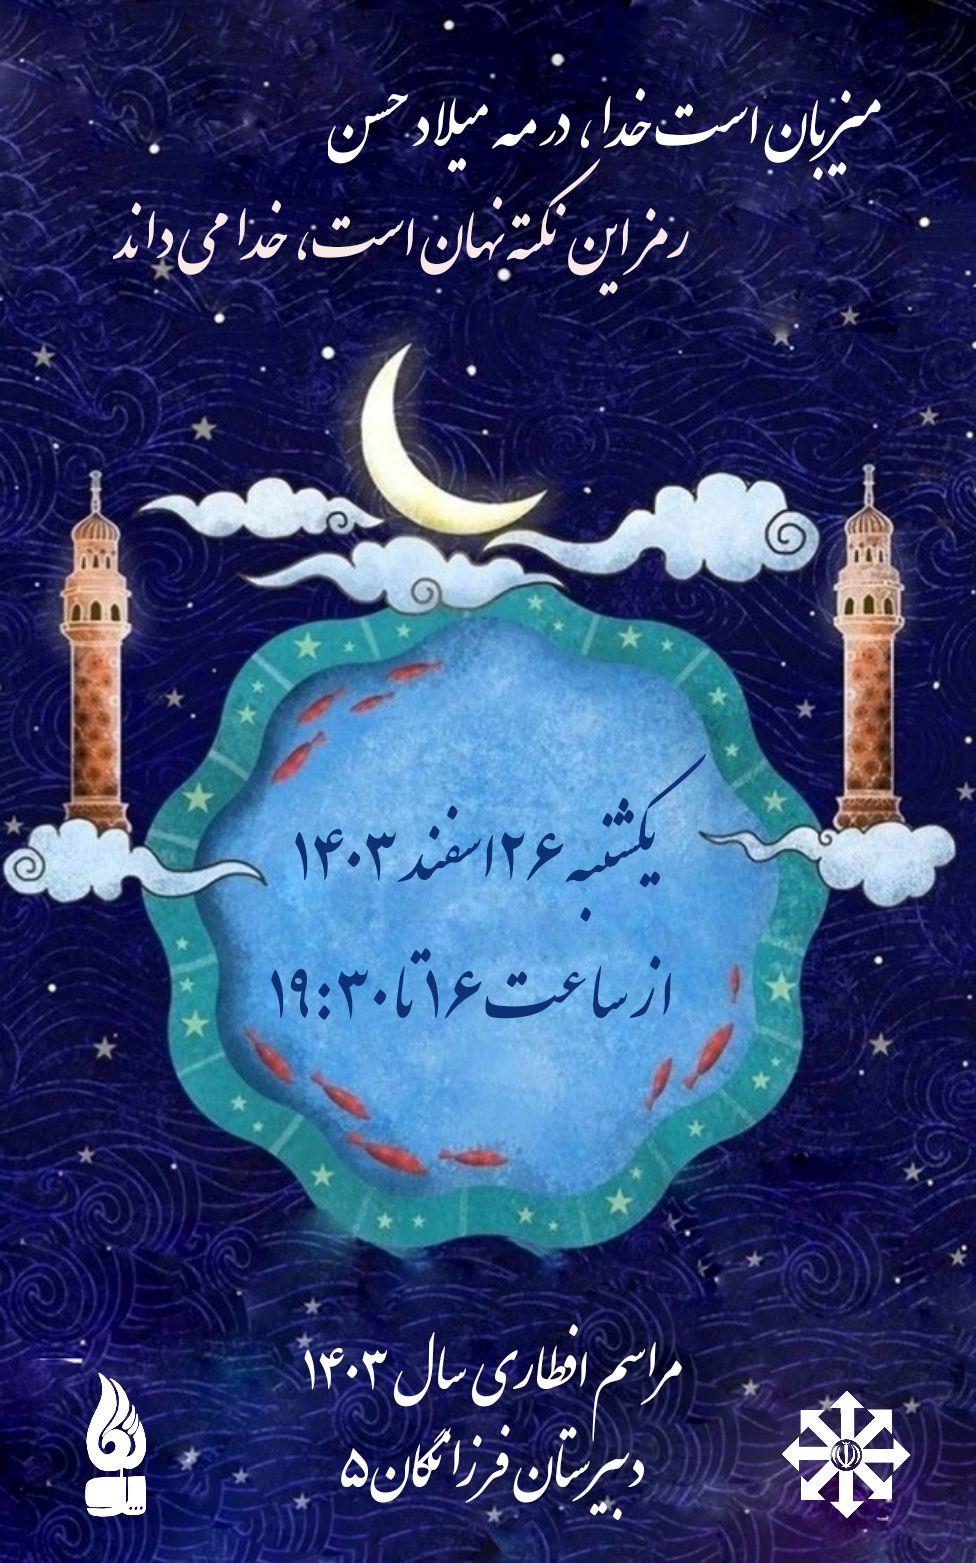 میزبان است خدا، در مه میلاد حسن
رمز این نکته نهان است، خدا می داند
یکشنبه ۲۶ اسفند ۱۴۰۳
از ساعت ۱۶ تا ۱۹:۳۰
مراسم افطاری سال ۱۴۰۳
دبیرستان فرزانگان ۵